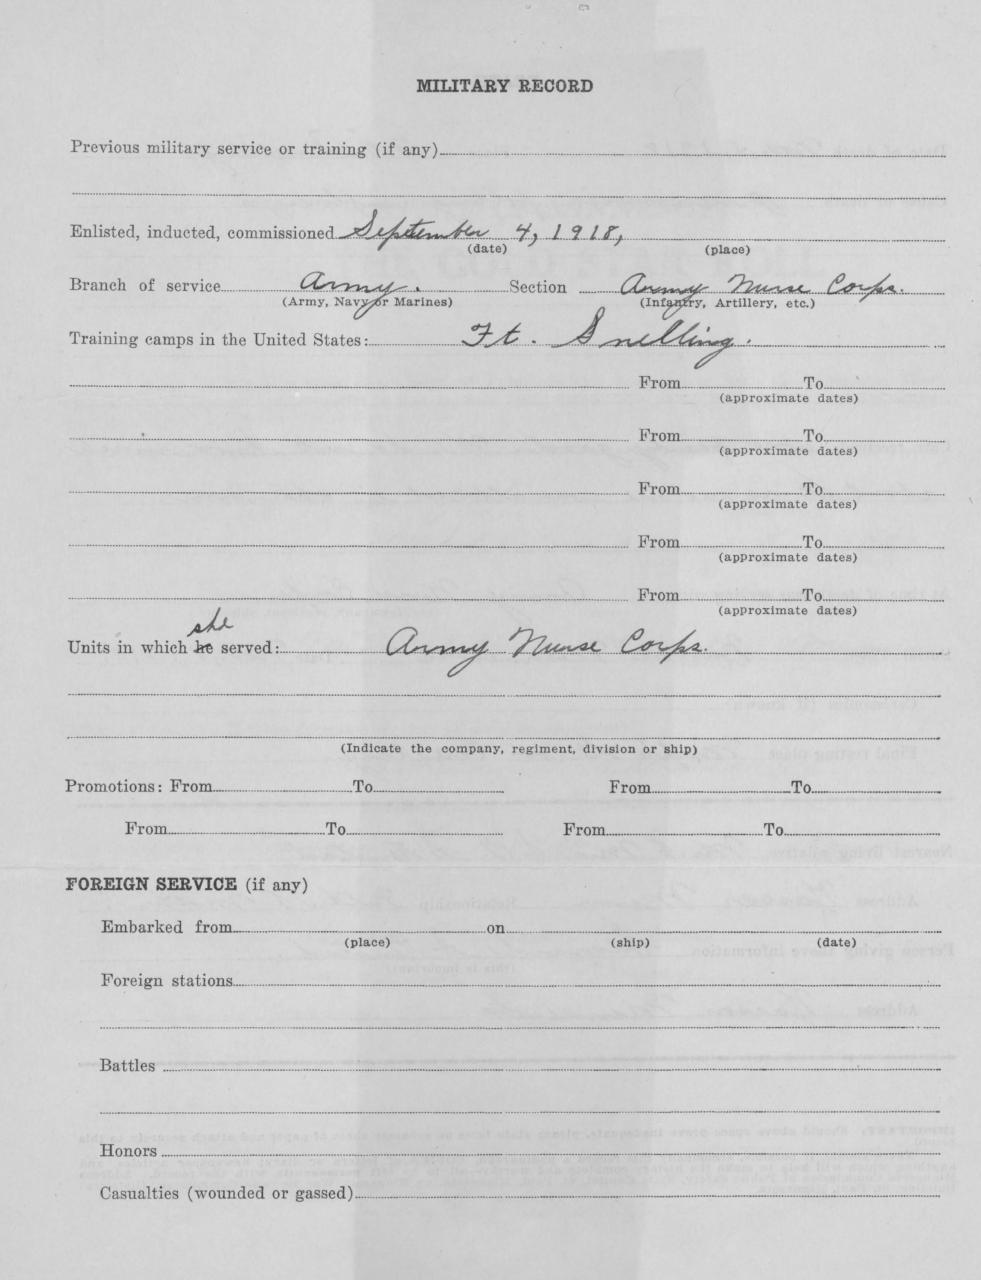 MILITARY RECORD
Previous military service or training (if any)
Enlisted, inducted, commissioned September 4, 1918,
(date) (place)
Branch of service Army. Section Army Nurse Corps.
(Army, Navy or Marines) (Infantry, Artillery, etc.)
Training camps in the United States: Ft. Snelling.
From To
(approximate dates)
From To
(approximate dates)
From To
(approximate dates)
From To
(approximate dates)
From To
(approximate dates)
she
Units in which he served: Army Nurse Corps.
(Indicate the company, regiment, division or ship)
Promotions: From To From To
From To From To
FOREIGN SERVICE (if any)
Embarked from on
(place) (ship) (date)
Foreign stations
Battles
Honors
Casualties (wounded or gassed)